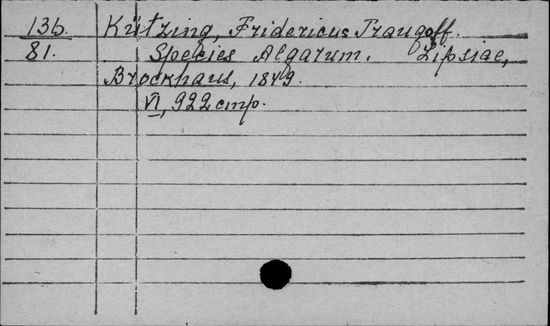 136. Kützing, Fridericus Traugott.
81. Species Algarum. Lipsiae,
Brockhaus, 1849.
VI, 922 стр.